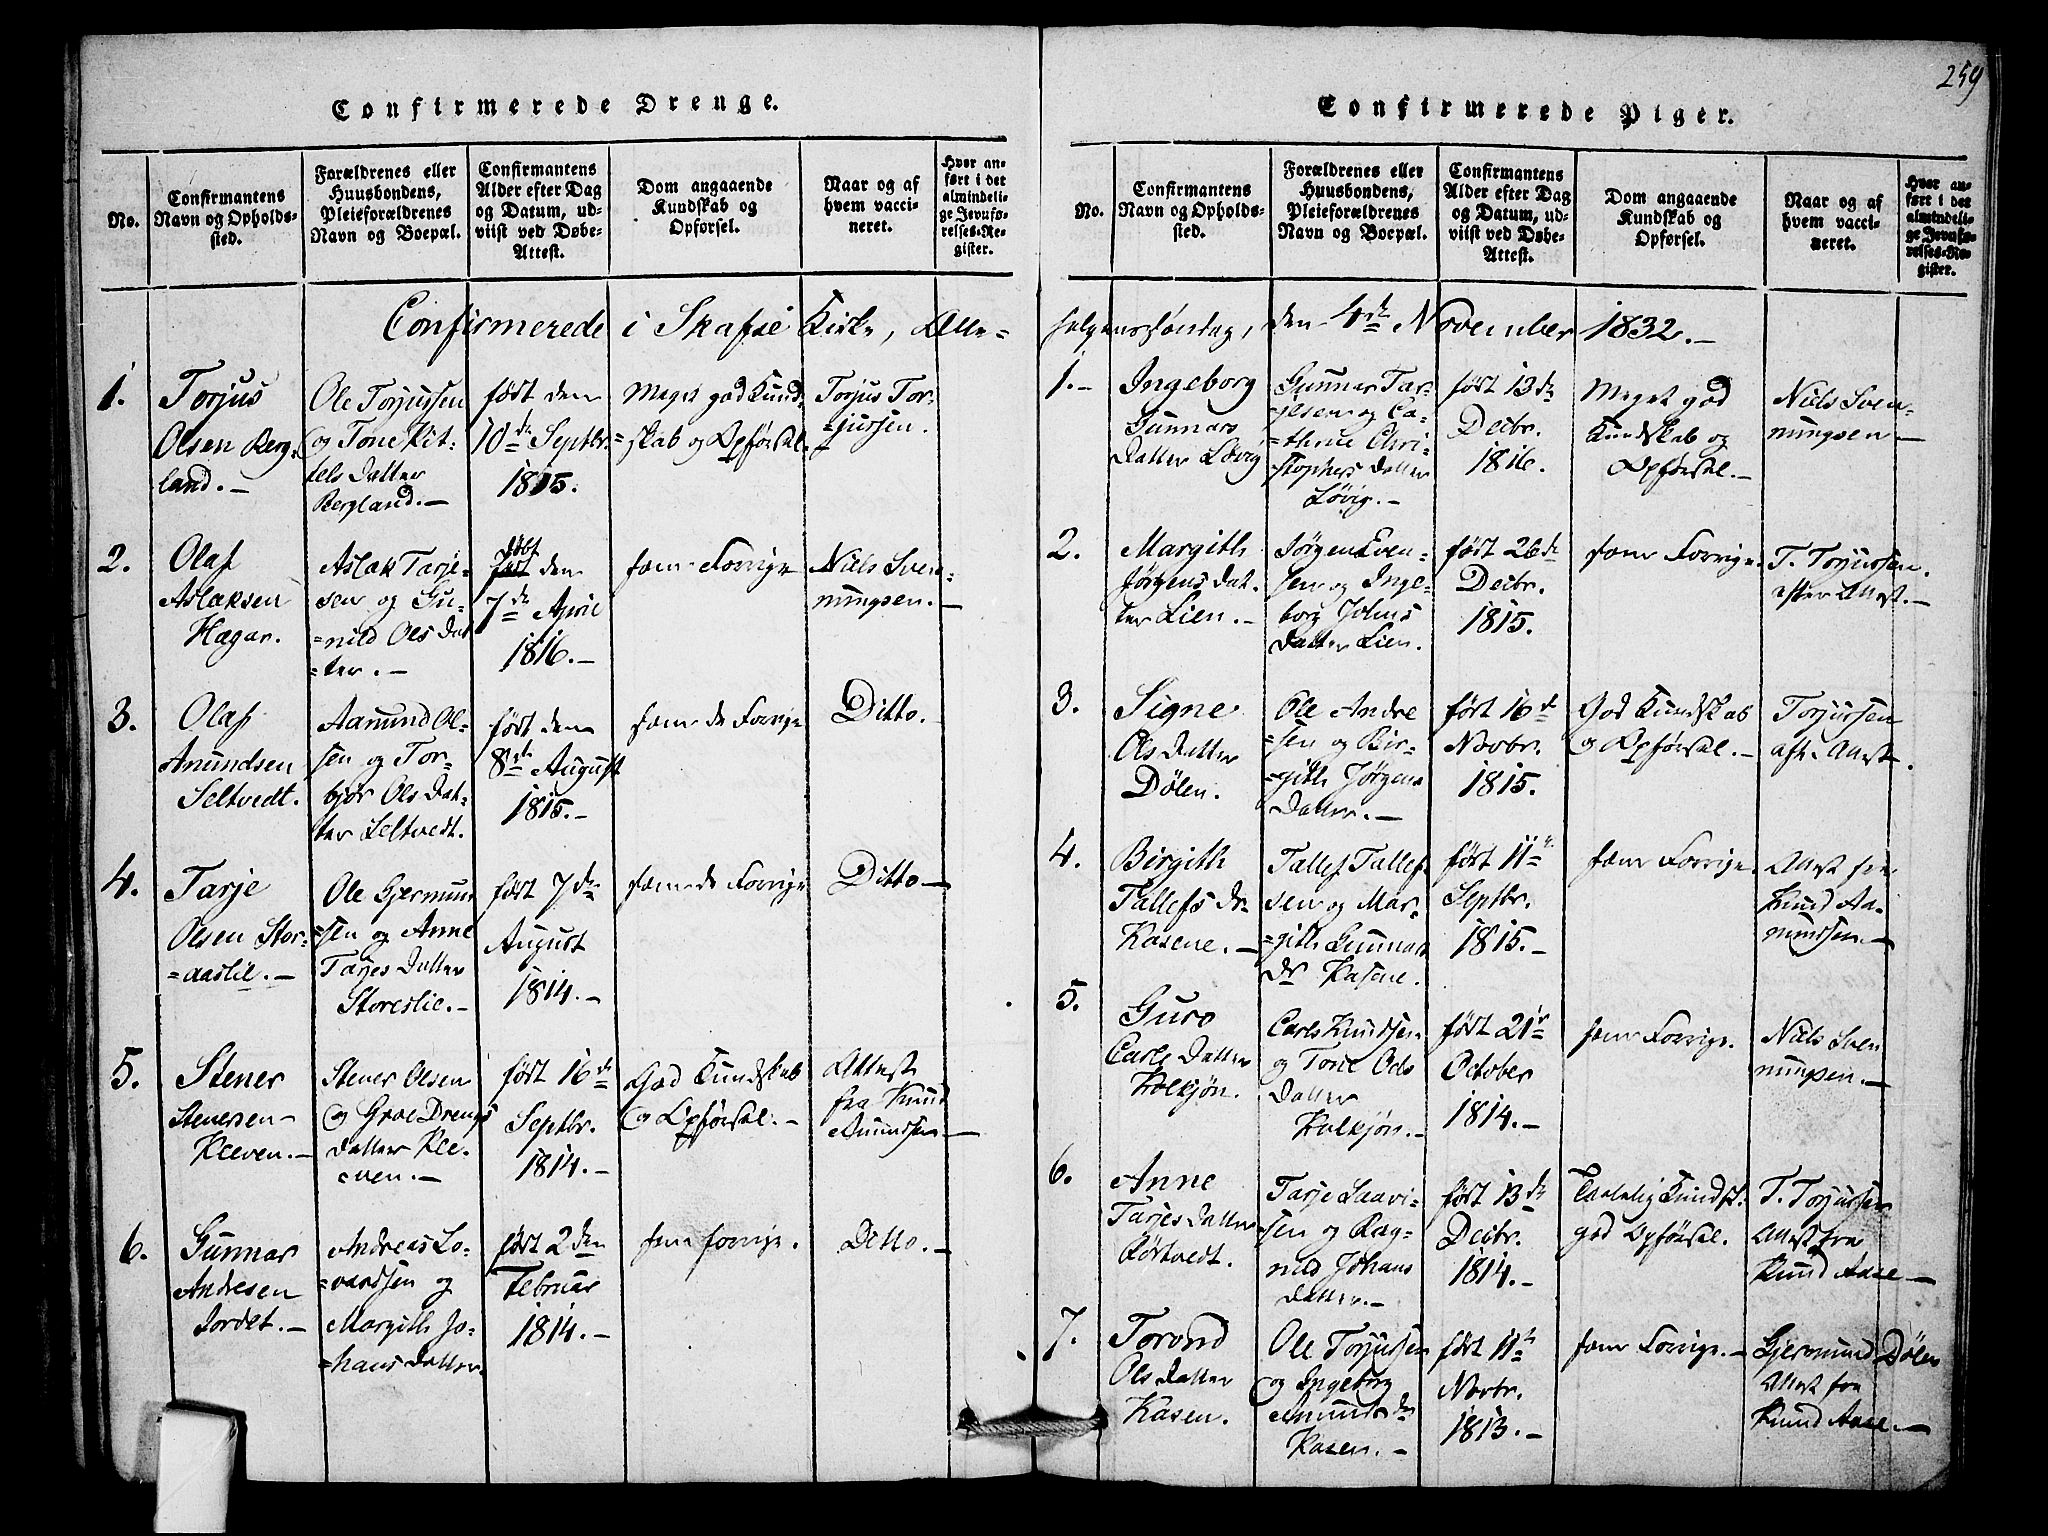 259
Confirmerede Drenge.
No.
Confirmantens
Navn og Opholds-
sted.
Forældrenes eller
Huusbondens,
Pleieforældrenes
Navn og Boepæl.
Confirmantens
Alder efter Dag
og Datum, ud-
viist ved Døbe-
Attest.
Dom angaaende
Kundskab og
Opførsel.
Naar og af
hvem vacci-
neret.
Hvor an-
ført i det
almindeli-
ge Jevnfø-
relses-Re-
gister.
Confirmerede i Skafse Kirke, Alle-
1.
Torjus
Olsen Berg-
land.-
Ole Torjussen
og Tone Kit-
tels Datter
Bergland.-
født den
10de Septbr.
1815.
Meget god Kund-
=skab og Opførsel.
Torjus Tor-
=jussen.
2.
Olaf
Aslaksen
Hægar.
Aslak Tarje-
sen og Gu-
=nild Ols Dat
=ter.-
døbt
født den
7de April
1816.-
som Forrige
Niels Sven-
ningsen.-
3.
Olaf
Anundsen
Seltvedt.
Aamund Ol-
sen og Tor-
bjør Ols Dat-
ter Seltvedt.
født den
8de August
1815.-
som de Forrige
Ditto.
4.
Tarje
Olsen Stor-
=aaslie.-
Ole Gjermund
=sen og Anne
Tarjes Datter
Storeslie.-
født 7de
August
1814.-
som de Forrige
Ditto-
5.
Stener
Stenersen-
Kleven.-
Stener Olsen
og Groe Drengs
Datter Kle-
even.-
født 16de
Septbr.
1814.-
God Kundskab
og Opførsel.-
Attest
fra Knud
Amundsen-
6.
Gunnar
Andresen
Jordet.-
Andreas Lo-
=vardsen og
Margith Jo-
=hans Datter
født 2den
Februar
1814.-
som forrige.
Ditto.-
Confirmerede Piger.
No.
Confirmantens
Navn og Opholds-
sted.
Forældrenes eller
Huusbondens,
Pleieforældrenes
Navn og Boepæl.
Confirmantens
Alder efter Dag
og Datum, ud-
viist ved Døbe-
Attest.
Dom angaaende
Kundskab og
Opførsel.
Naar og af
hvem vacci-
neret.
Hvor an-
ført i det
almindeli-
ge Jevnfø-
relses-Re-
gister.
helgenssøndag, den 4de November 1832.-
1.-
Ingeborg
Gunnars
Datter Løvig
Gunnar Tar-
jesen og Ca-
=thrine Chri-
stophers Datter
Løvig.-
født 13de
Decbr.
1816.
Meget god
Kundskab og
Opførsel.-
Niels Sven-
ningsen-
2.
Margith
Jørgens Dat-
ter Lien.-
Jørgen Even-
sen og Inge-
borg Johns
Datter Lien.
født 26de
Decbr.
1815.
som Forrige.
T. Torjussen.
efter Attest.-
3.
Signe
Ols Datter
Dølen.
Ole Andre
=sen og Bir-
=gith Jørgens
Datter.-
født 16de
Novbr.
1815.
God Kundskab
og Opførsel.-
Torjussen
aft. Attest.
4.
Birgith
Tallefs Dr
Kasene.-
Tallef Tallef
sen og Mar-
=gith Gunnars
Dr Kasene.
født 11te
Septbr.
1815.-
som Forrige.
Attest fra
Knud Aa-
mundsen.-
5.
Guro
Carls Datter
Kolkjøn.
Carls Knudsen
og Tone Ols
Datter
Kolkjøn.-
født 21de
October
1814.-
som Forrige.
Niels Sven
ningsen.-
6.
Anne
Tarjes Datter
Rørtvedt.
Tarje Saavi-
sen og Rag-
nild Johans
Datter.-
født 13de
Decbr.
1814.-
Taalelig Kundsk.
god Opførsel.
T. Torjussen
Attest fra
Knud Aase-
7.
Torond
Ols Datter
Kasen.
Ole Torjussen
og Ingeborg
Amunds dr
Kasen.-
født 11te
Novbr.
1813.-
som Forrige.-
Gjermund Dølen
Attest fra
Knud Aase-